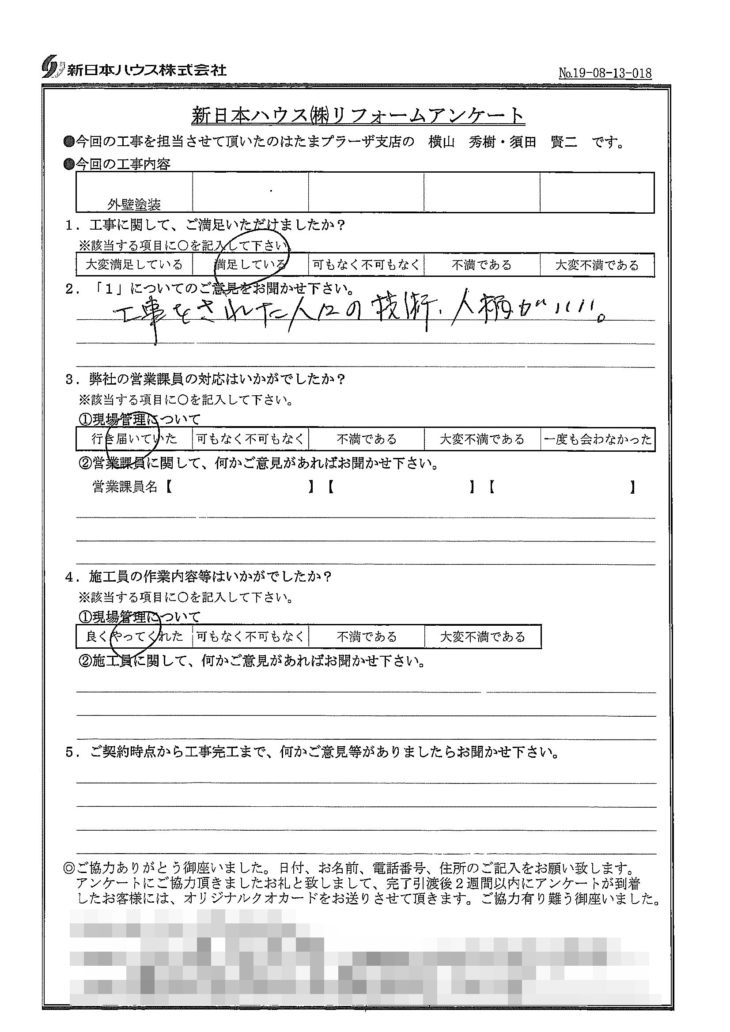 新日本ハウス株式会社
№19-08-13-018
新日本ハウス㈱リフォームアンケート
●今回の工事を担当させて頂いたのはたまプラーザ支店の 横山 秀樹・須田 賢二 です。
●今回の工事内容
外壁塗装
1．工事に関して、ご満足いただけましたか？
※該当する項目に○を記入して下さい
大変満足している 満足している 可もなく不可もなく 不満である 大変不満である
2．「1」についてのご意見をお聞かせ下さい。
工事をされた人々の技術、人柄がいい。
3．弊社の営業課員の対応はいかがでしたか？
※該当する項目に○を記入して下さい。
①現場管理について
行き届いていた 可もなく不可もなく 不満である 大変不満である 一度も会わなかった
②営業課員に関して、何かご意見があればお聞かせ下さい。
営業課員名【 】【 】【 】
4．施工員の作業内容等はいかがでしたか？
※該当する項目に○を記入して下さい。
①現場管理について
良くやってくれた 可もなく不可もなく 不満である 大変不満である
②施工員に関して、何かご意見があればお聞かせ下さい。
5．ご契約時点から工事完工まで、何かご意見等がありましたらお聞かせ下さい。
◎ご協力ありがとう御座いました。日付、お名前、電話番号、住所のご記入をお願い致します。
アンケートにご協力頂きましたお礼と致しまして、完了引渡後2週間以内にアンケートが到着
したお客様には、オリジナルクオカードをお送りさせて頂きます。ご協力有り難う御座いました。